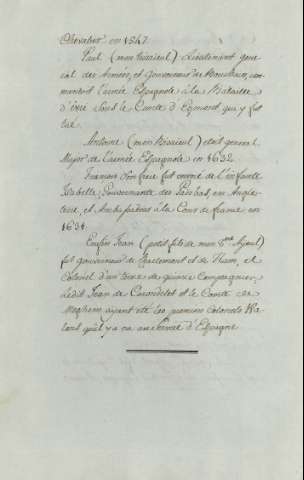 Chevalier en 1547.
Paul (mon trisaieul) Lieutenant gene
ral des Armées, et Gouverneur de Bouchain, com
mandoit l'armée Espagnole à la Bataille
d'     sous le Comte d'Egmont qui y fut
tué.
Antoine (mon Bisaieul) etoit general
Major de l'armée Espagnole en 1632.
Francois son frere fut envoié de l'infante
Isabelle, Gouvernante des Paisbas, en Angle-
terre, et Ambassadeur à la Cour de france en
1634.
Enfin Jean (petit fils de mon Ayeul)
fut gouverneur de Charlemont et de Ham, et
Colonel d'un terce de quinze Compagnies,
ledit Jean de Carondelet et le Comte de
Meghem ayant été les premiers Colonels Wa
lons qu'il y a eu au Service d'Espagne